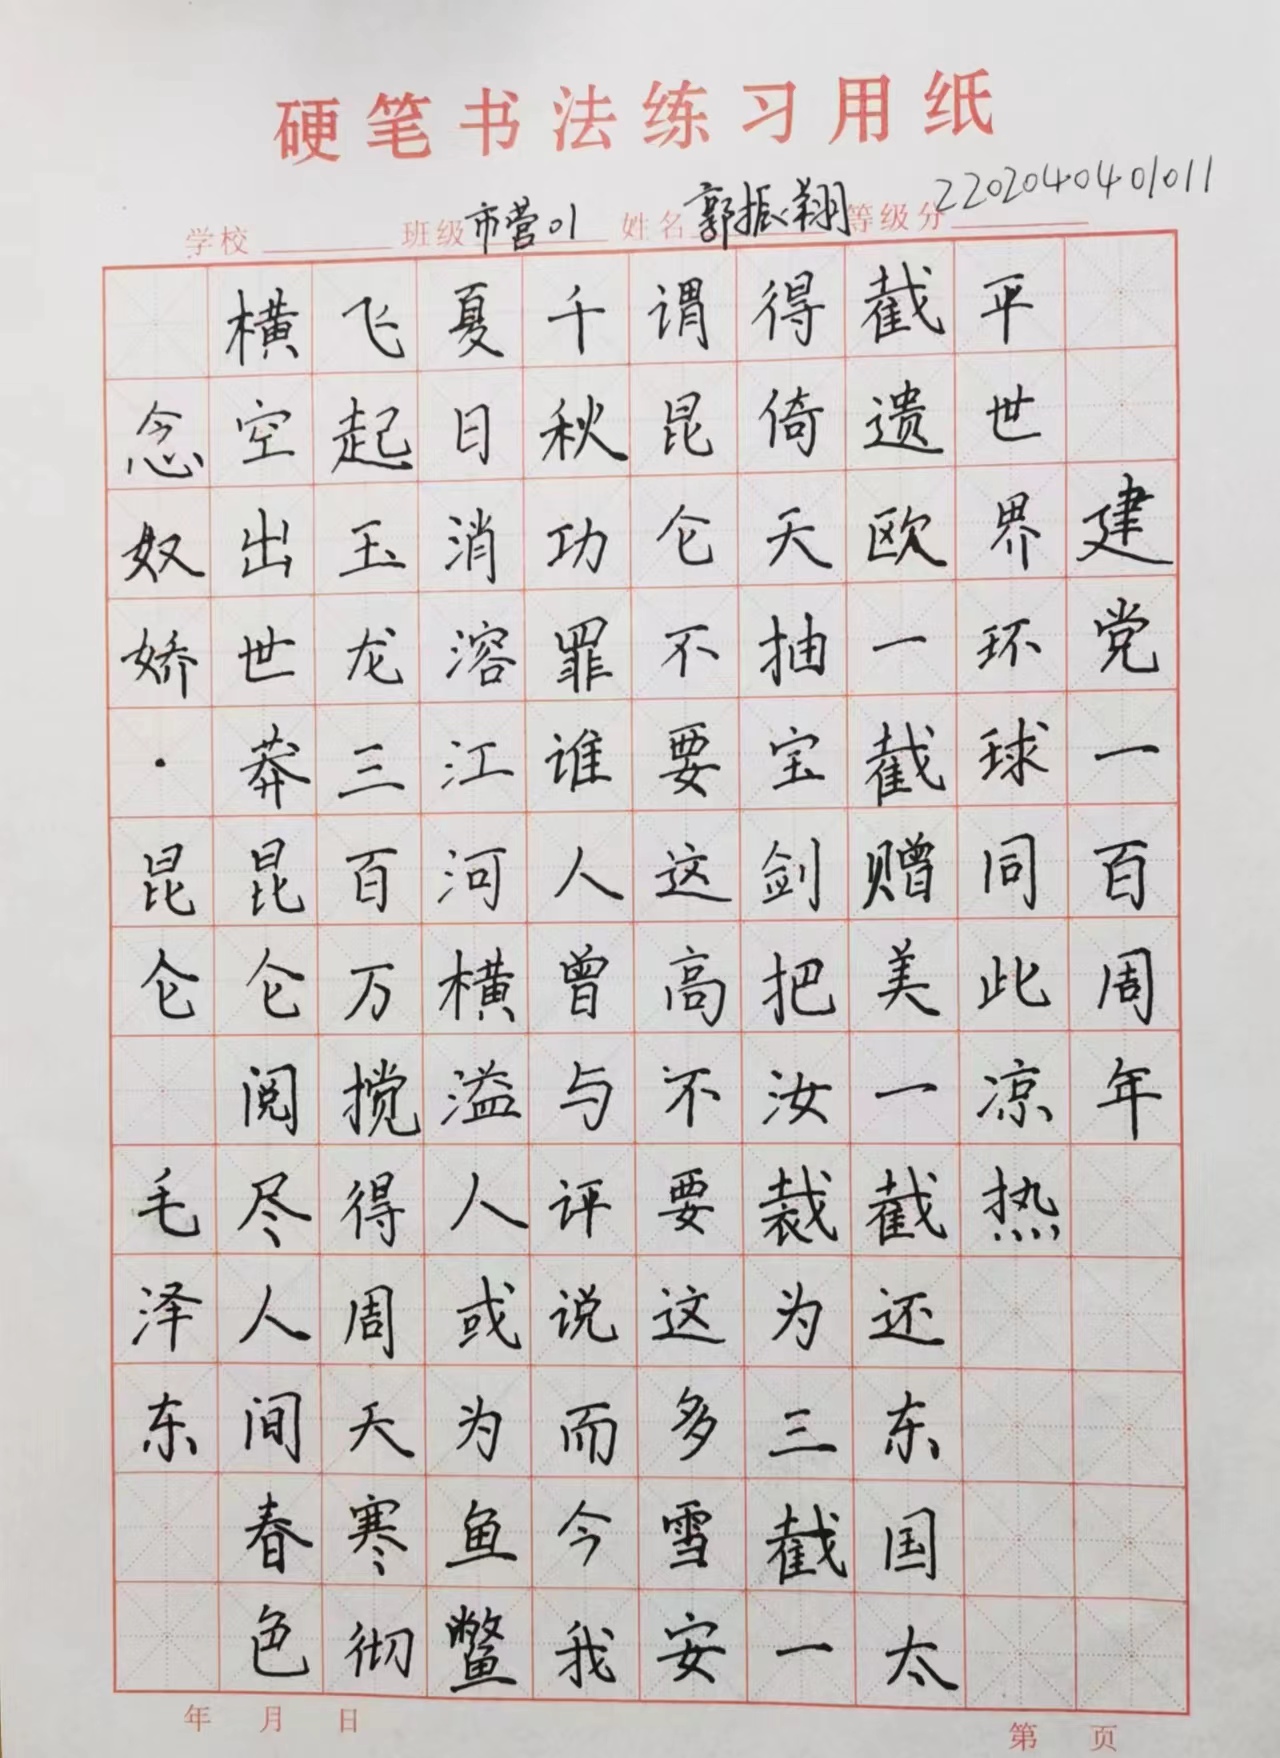 硬笔书法练习用纸
学校 班级 市营01 姓名 郭振翔 等级分 2202040401011
念奴娇·昆仑 毛泽东
横空出世莽昆仑阅尽人间春色
飞起玉龙三百万搅得周天寒彻
夏日消溶江河横溢人或为鱼鳖
千秋功罪谁人曾与评说而今我
谓昆仑不要这高不要这多雪安
得倚天抽宝剑把汝裁为三截一
截遗欧一截赠美一截还东国太
平世界环球同此凉热
建党一百周年
年 月 日
第 页